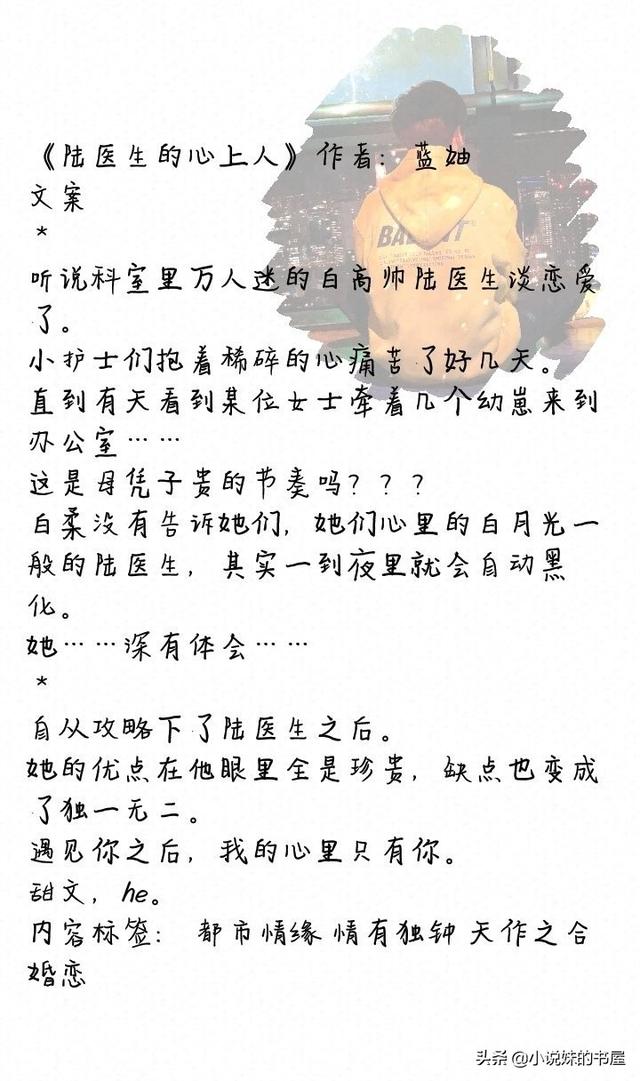 《陆医生的心上人》作者：蓝妯
文案
*
听说科室里万人迷的白高帅陆医生谈恋爱
了。
小护士们抱着稀碎的心痛苦了好几天。
直到有天看到某位女士牵着几个幼崽来到
办公室……
这是母凭子贵的节奏吗？？？
白柔没有告诉她们，她们心里的白月光一
般的陆医生，其实一到夜里就会自动黑
化。
她……深有体会……
*
自从攻略下了陆医生之后。
她的优点在他眼里全是珍贵，缺点也变成
了独一无二。
遇见你之后，我的心里只有你。
甜文，he。
内容标签： 都市情缘 情有独钟 天作之合
婚恋
头条 @小说妹的书屋